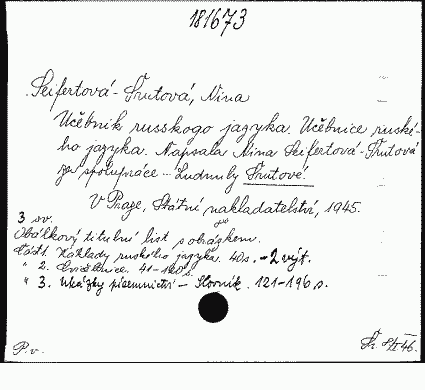 181673
Seifertová-Trutová, Nina
Učebnik russkogo jazyka. Učebnice ruské-
ho jazyka. Napsala Nina Seifertová-Trutová
za spolupráce ... Ludmily Trutové.
V Praze, Státní nakladatelství, 1945.
3 sv.
Obálkový titulní list s obrázkem.
Část 1. Základy ruského jazyka. 40 s. - 2 výt.
" 2. Cvičebnice. 41-120 s.
" 3. Ukázky písemnictví - Slovník. 121-196 s.
P. v.
46.